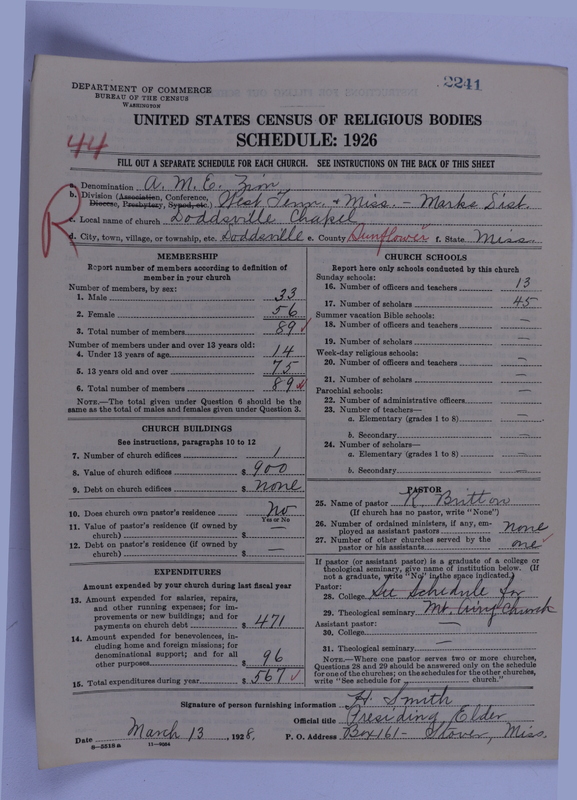 2241
DEPARTMENT OF COMMERCE
BUREAU OF THE CENSUS
WASHINGTON
UNITED STATES CENSUS OF RELIGIOUS BODIES
SCHEDULE: 1926
44
FILL OUT A SEPARATE SCHEDULE FOR EACH CHURCH. SEE INSTRUCTIONS ON THE BACK OF THIS SHEET
R
a. Denomination A. M. E. Zion
b. Division (Association, Conference, Diocese, Presbytery, Synod, etc.) West Tenn. & Miss. - Marks Dist.
c. Local name of church Doddsville Chapel
d. City, town, village, or township, etc. Doddsville e. County Sunflower f. State Miss.
MEMBERSHIP
Report number of members according to definition of
member in your church
Number of members, by sex:
1. Male 33
2. Female 56
3. Total number of members 89
Number of members under and over 13 years old:
4. Under 13 years of age 14
5. 13 years old and over 75
6. Total number of members 89
NOTE.—The total given under Question 6 should be
the same as the total of males and females given under Question 3.
CHURCH BUILDINGS
See instructions, paragraphs 10 to 12
7. Number of church edifices 1
8. Value of church edifices $ 900
9. Debt on church edifices $ none
10. Does church own pastor's residence No
Yes or No
11. Value of pastor's residence (if owned by
church) $ —
12. Debt on pastor's residence (if owned by
church) $ —
EXPENDITURES
Amount expended by your church during last fiscal year
13. Amount expended for salaries, repairs,
and other running expenses; for im-
provements or new buildings; and for
payments on church debt $ 471
14. Amount expended for benevolences, in-
cluding home and foreign missions; for
denominational support; and for all
other purposes $ 96
15. Total expenditures during year $ 567
CHURCH SCHOOLS
Report here only schools conducted by this church
Sunday schools:
16. Number of officers and teachers 13
17. Number of scholars 45
Summer vacation Bible schools:
18. Number of officers and teachers —
19. Number of scholars —
Week-day religious schools:
20. Number of officers and teachers —
21. Number of scholars —
Parochial schools:
22. Number of administrative officers —
23. Number of teachers—
a. Elementary (grades 1 to 8) —
b. Secondary —
24. Number of scholars—
a. Elementary (grades 1 to 8) —
b. Secondary —
PASTOR
25. Name of pastor R. Britton
(If church has no pastor, write "None")
26. Number of ordained ministers, if any, em-
ployed as assistant pastors none
27. Number of other churches served by the
pastor or his assistants one
If pastor (or assistant pastor) is a graduate of a college or
theological seminary, give name of institution below. (If
not a graduate, write "No" in the space indicated)
Pastor:
28. College See Schedule for
29. Theological seminary Mt. Church
Assistant pastor: —
30. College
31. Theological seminary —
NOTE.—Where one pastor serves two or more churches,
Questions 28 and 29 should be answered only on the schedule
for one of the churches; on the schedules for the other churches,
write "See schedule for church."
Signature of person furnishing information H. Smith
Official title Presiding Elder
Date March 13, 1928. P. O. Address Box 161 - Stover, Miss.
8-5518a 11-9084